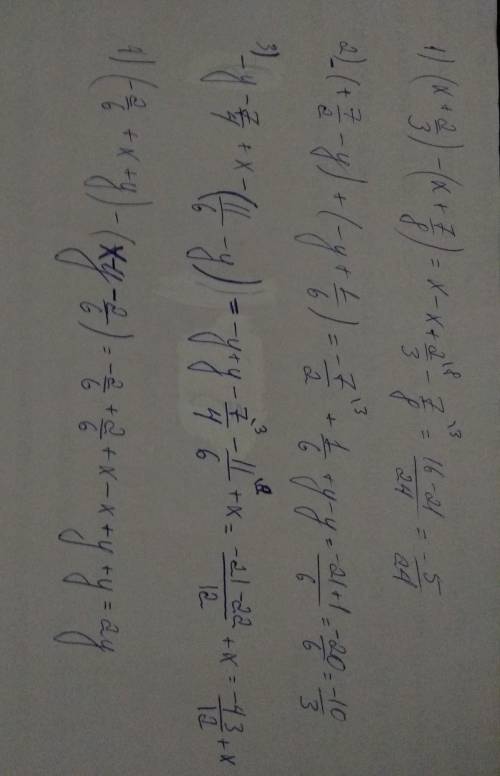 1) (x + 2/3) - (x + 7/8) = x - x + 2/3 \8 - 7/8 \3 = 16-21/24 = -5/24
2) -(+ 7/2 - y) + (-y + 1/6) = -7/2 \3 + 1/6 + y - y = -21+1/6 = -20/6 = -10/3
3) -y - 7/4 + x - (11/6 - y) = -y + y - 7/4 \3 - 11/6 \2 + x = -21-22/12 + x = -43/12 + x
4) (-2/6 + x + y) - (x - y - 2/6) = -2/6 + 2/6 + x - x + y + y = 2y